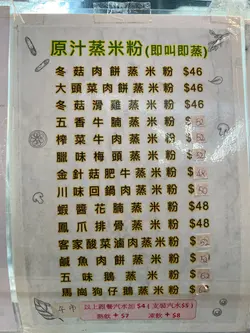 原汁蒸米粉(即叫即蒸)
冬菇肉餅蒸米粉 $46
大頭菜肉餅蒸米粉 $46
冬菇滑雞蒸米粉 $46
五香牛腩蒸米粉 $
榨菜牛肉蒸米粉 $
臘味梅頭蒸米粉 $
金針菇肥牛蒸米粉 $
川味回鍋肉蒸米粉 $
蝦醬花腩蒸米粉 $48
鳳爪排骨蒸米粉 $48
客家酸菜滷肉蒸米粉 $
鹹魚肉餅蒸米粉 $
五味鵝蒸米粉 $
馬崗狗仔鵝蒸米粉 $
以上跟餐汽水加 $4(支裝汽水$6)
熱飲 + $7 凍飲 + $8